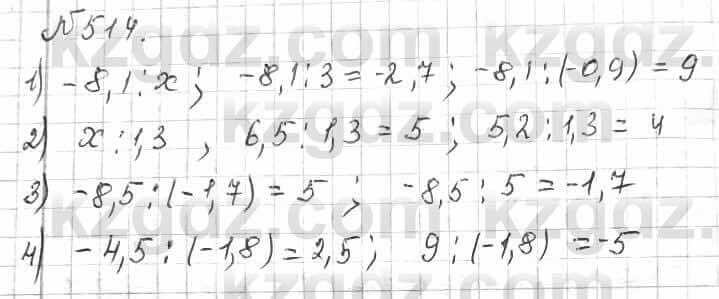 №514.
1) -8,1:x; -8,1:3=-2,7; -8,1:(-0,9)=9
2) x:1,3, 6,5:1,3=5; 5,2:1,3=4
3) -8,5:(-1,7)=5; -8,5:5=-1,7
4) -4,5:(-1,8)=2,5; 9:(-1,8)=-5
kzgdz.com